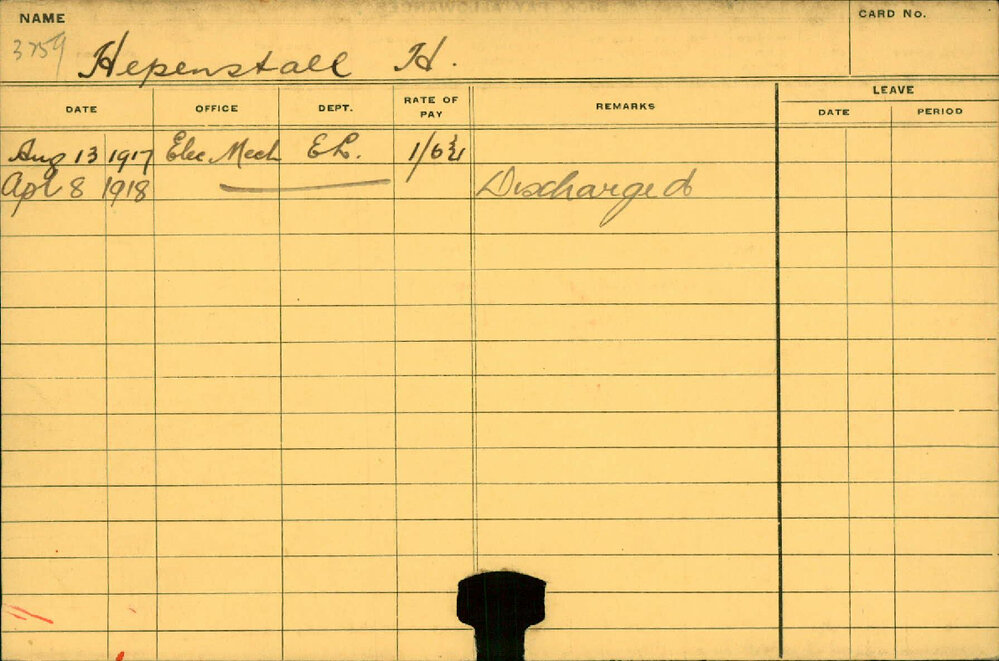 NAME
CARD No.
3759
Hepenstall H.
DATE OFFICE DEPT. RATE OF PAY REMARKS LEAVE
DATE PERIOD
Aug 13 1917 Elec Mech E L. 1/6¾
Apl 8 1918 Discharged